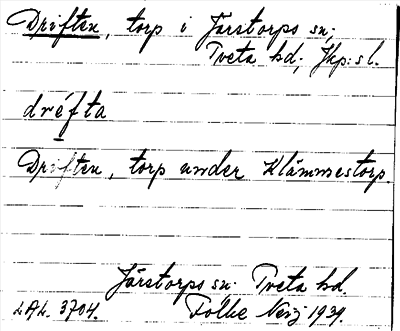 Driften, torp i Järstorps sn;
Tveta hd; Jkp:s l.
dréfta
Driften, torp under Klämmestorp.
Järstorps sn: Tveta hd.
LAL. 3704. Folke 1939.